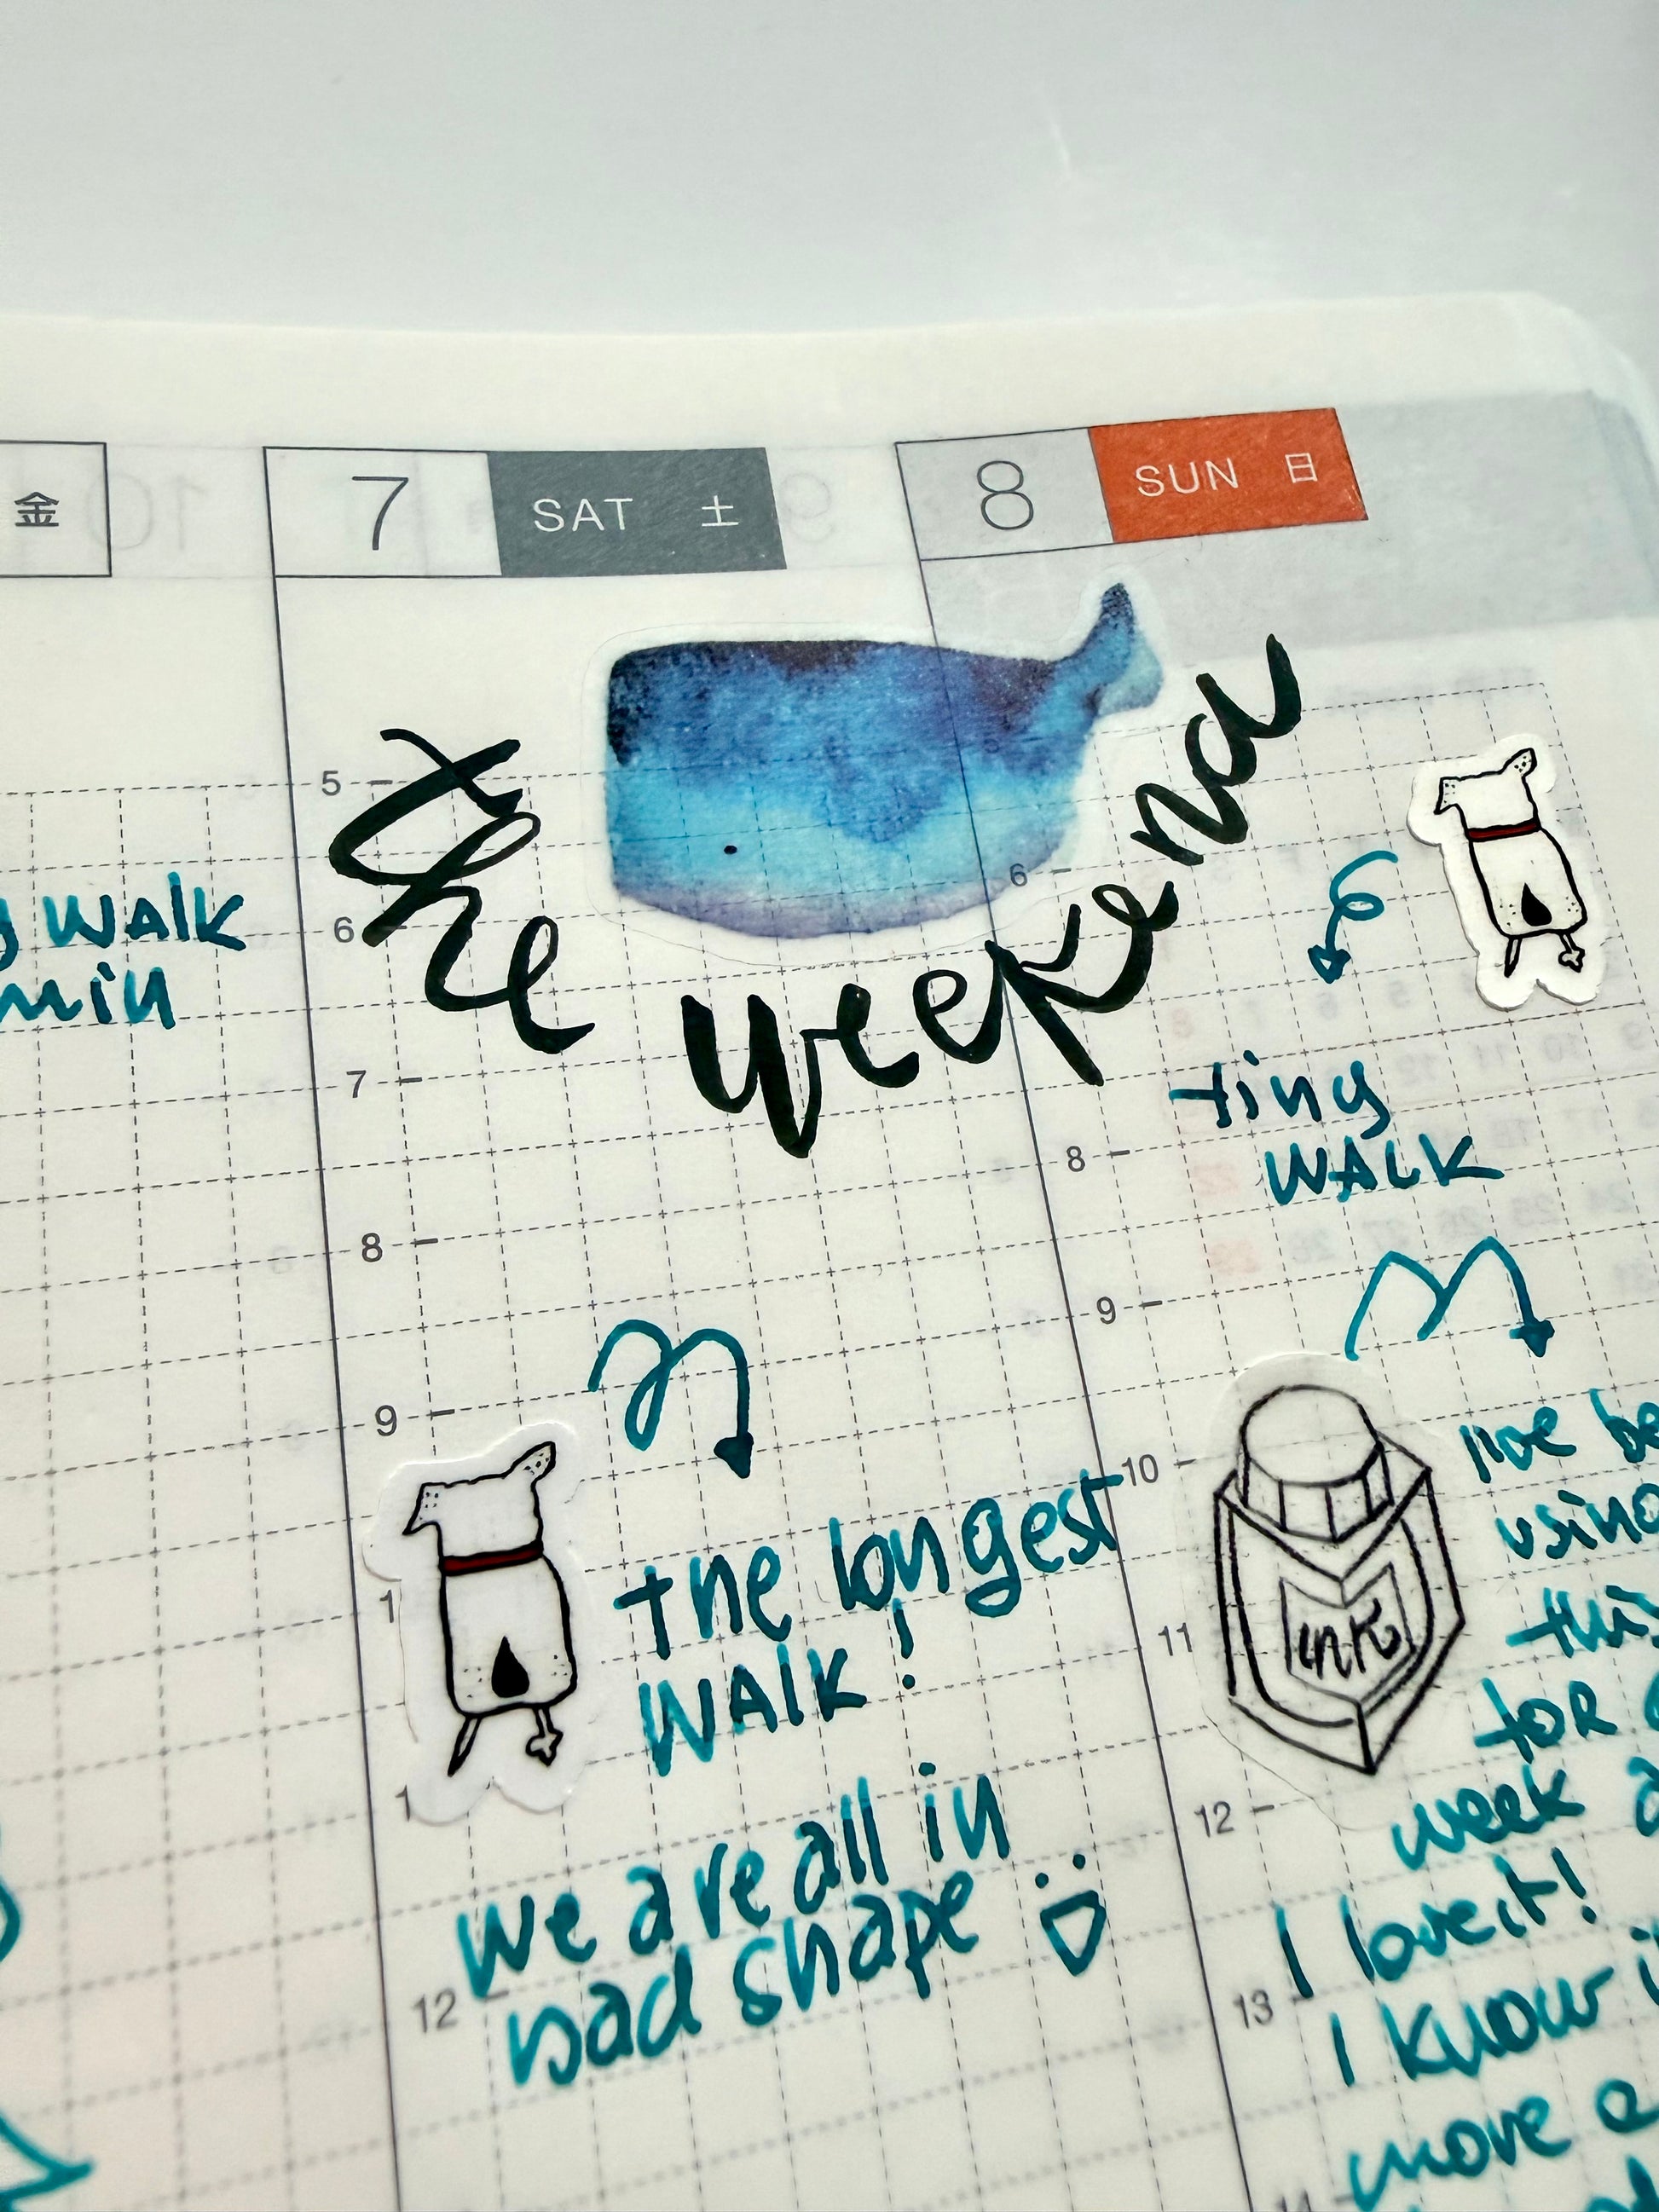 金
7 SAT 土
8 SUN 日
the weekend
WALK
min
5
6
7
8
9
12
the longest
WALK!
we are all in
bad shape
6
8
9
10
11
12
13
tiny
WALK
INK
I've be
using
this
for
week a
I love it!
I know i
more